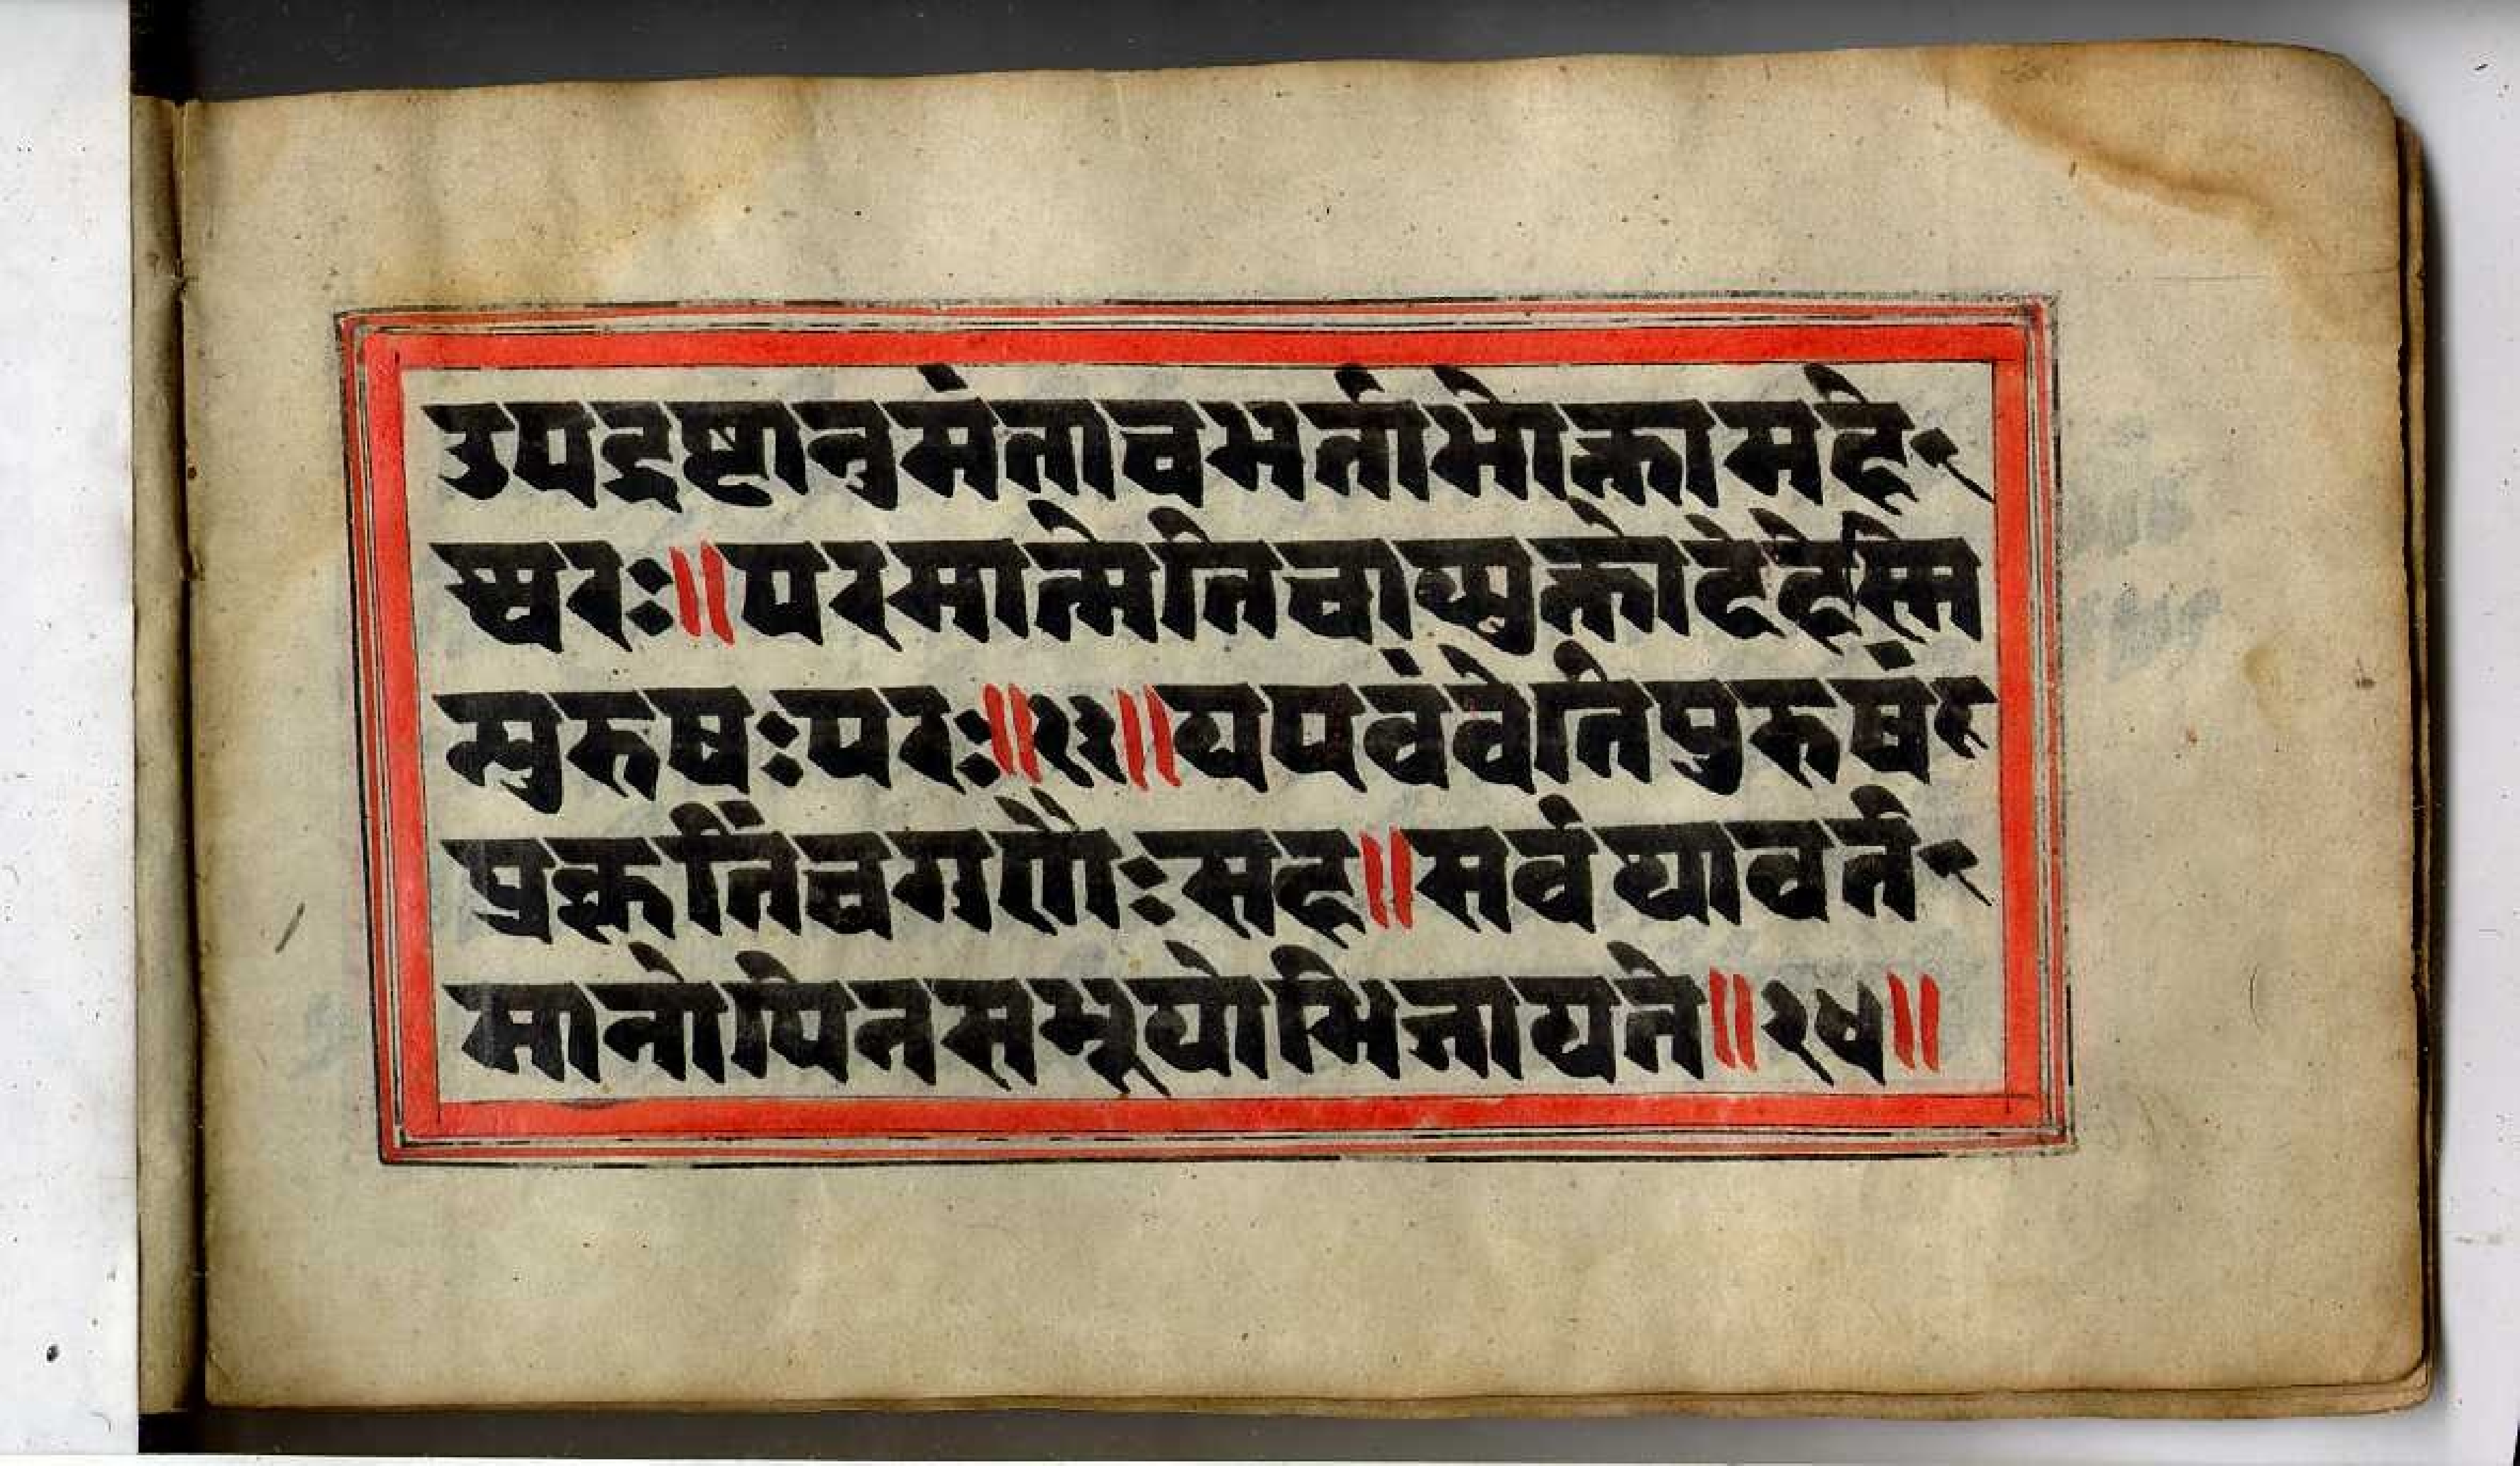 उपद्रष्टानुमंताचभर्ताभोक्तामहे-
श्वरः॥परमात्मेतिचाप्युक्तोदेहेस्मि
न्पुरुषःपरः॥२३॥यएवंवेतिपुरुषं
प्रकृतिंचगुणैःसह॥सर्वथावर्त-
मानोपिनसभूयोभिजायते॥२४॥